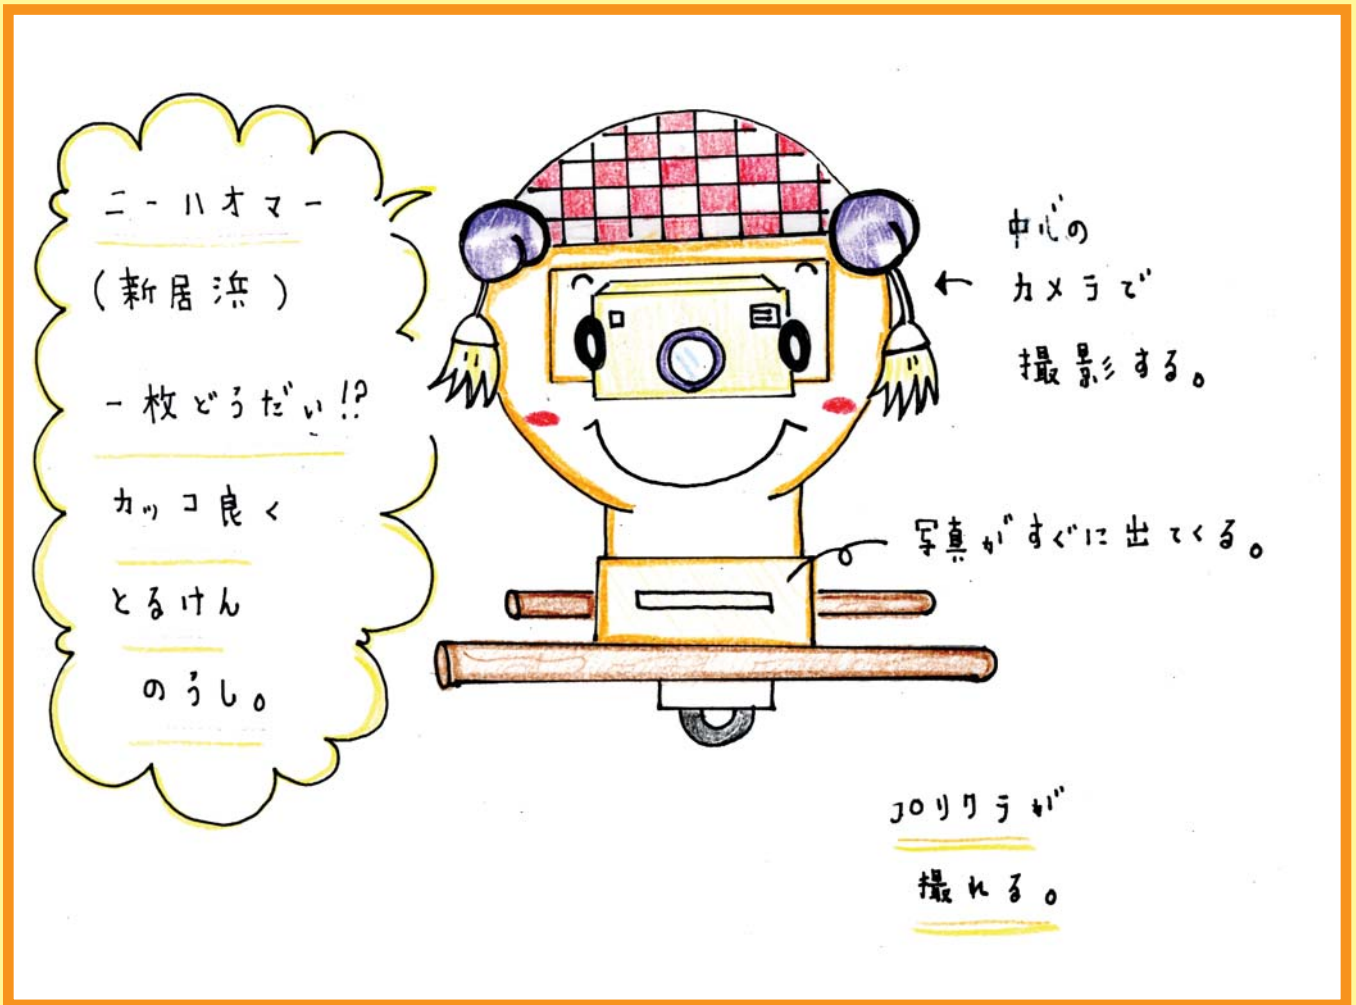 ニーハオマー
(新居浜)
一枚どうだい!?
カッコ良く
とるけん
のうし。
中心の
カメラで
撮影する。
写真がすぐに出てくる。
プリクラが
撮れる。